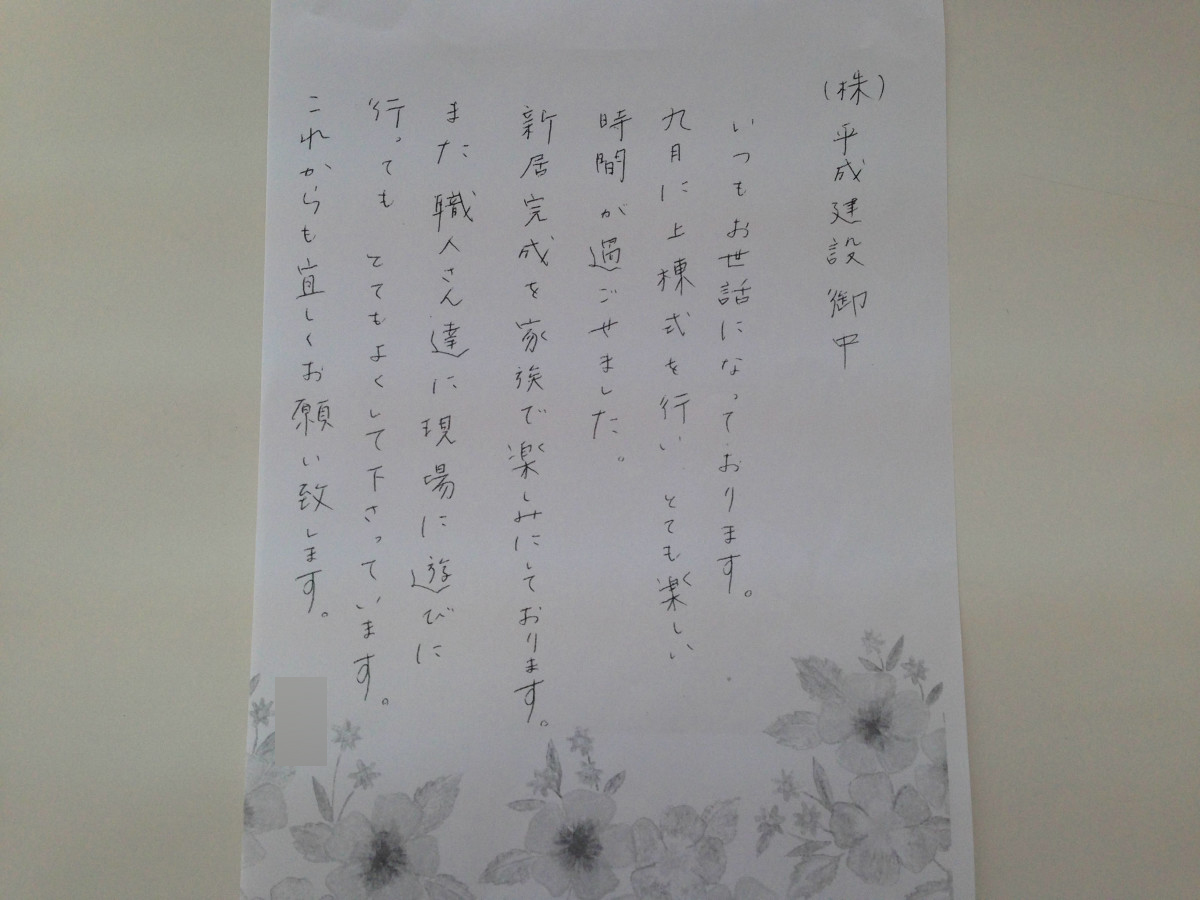 (株)平成建設 御中
いつもお世話になっております。
九月に上棟式を行い とても楽しい
時間が過ごせました。
新居完成を家族で楽しみにしております。
また職人さん達に現場に遊びに
行っても とてもよくして下さっています。
これからも宜しくお願い致します。